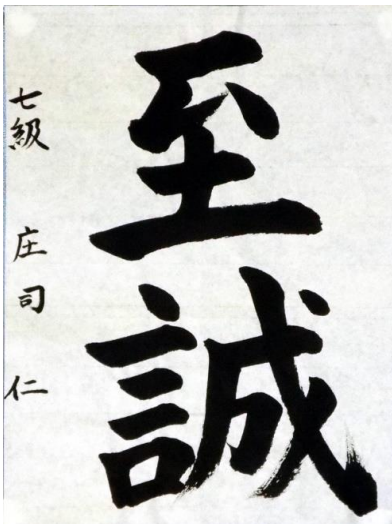 至誠
七級 庄司 仁